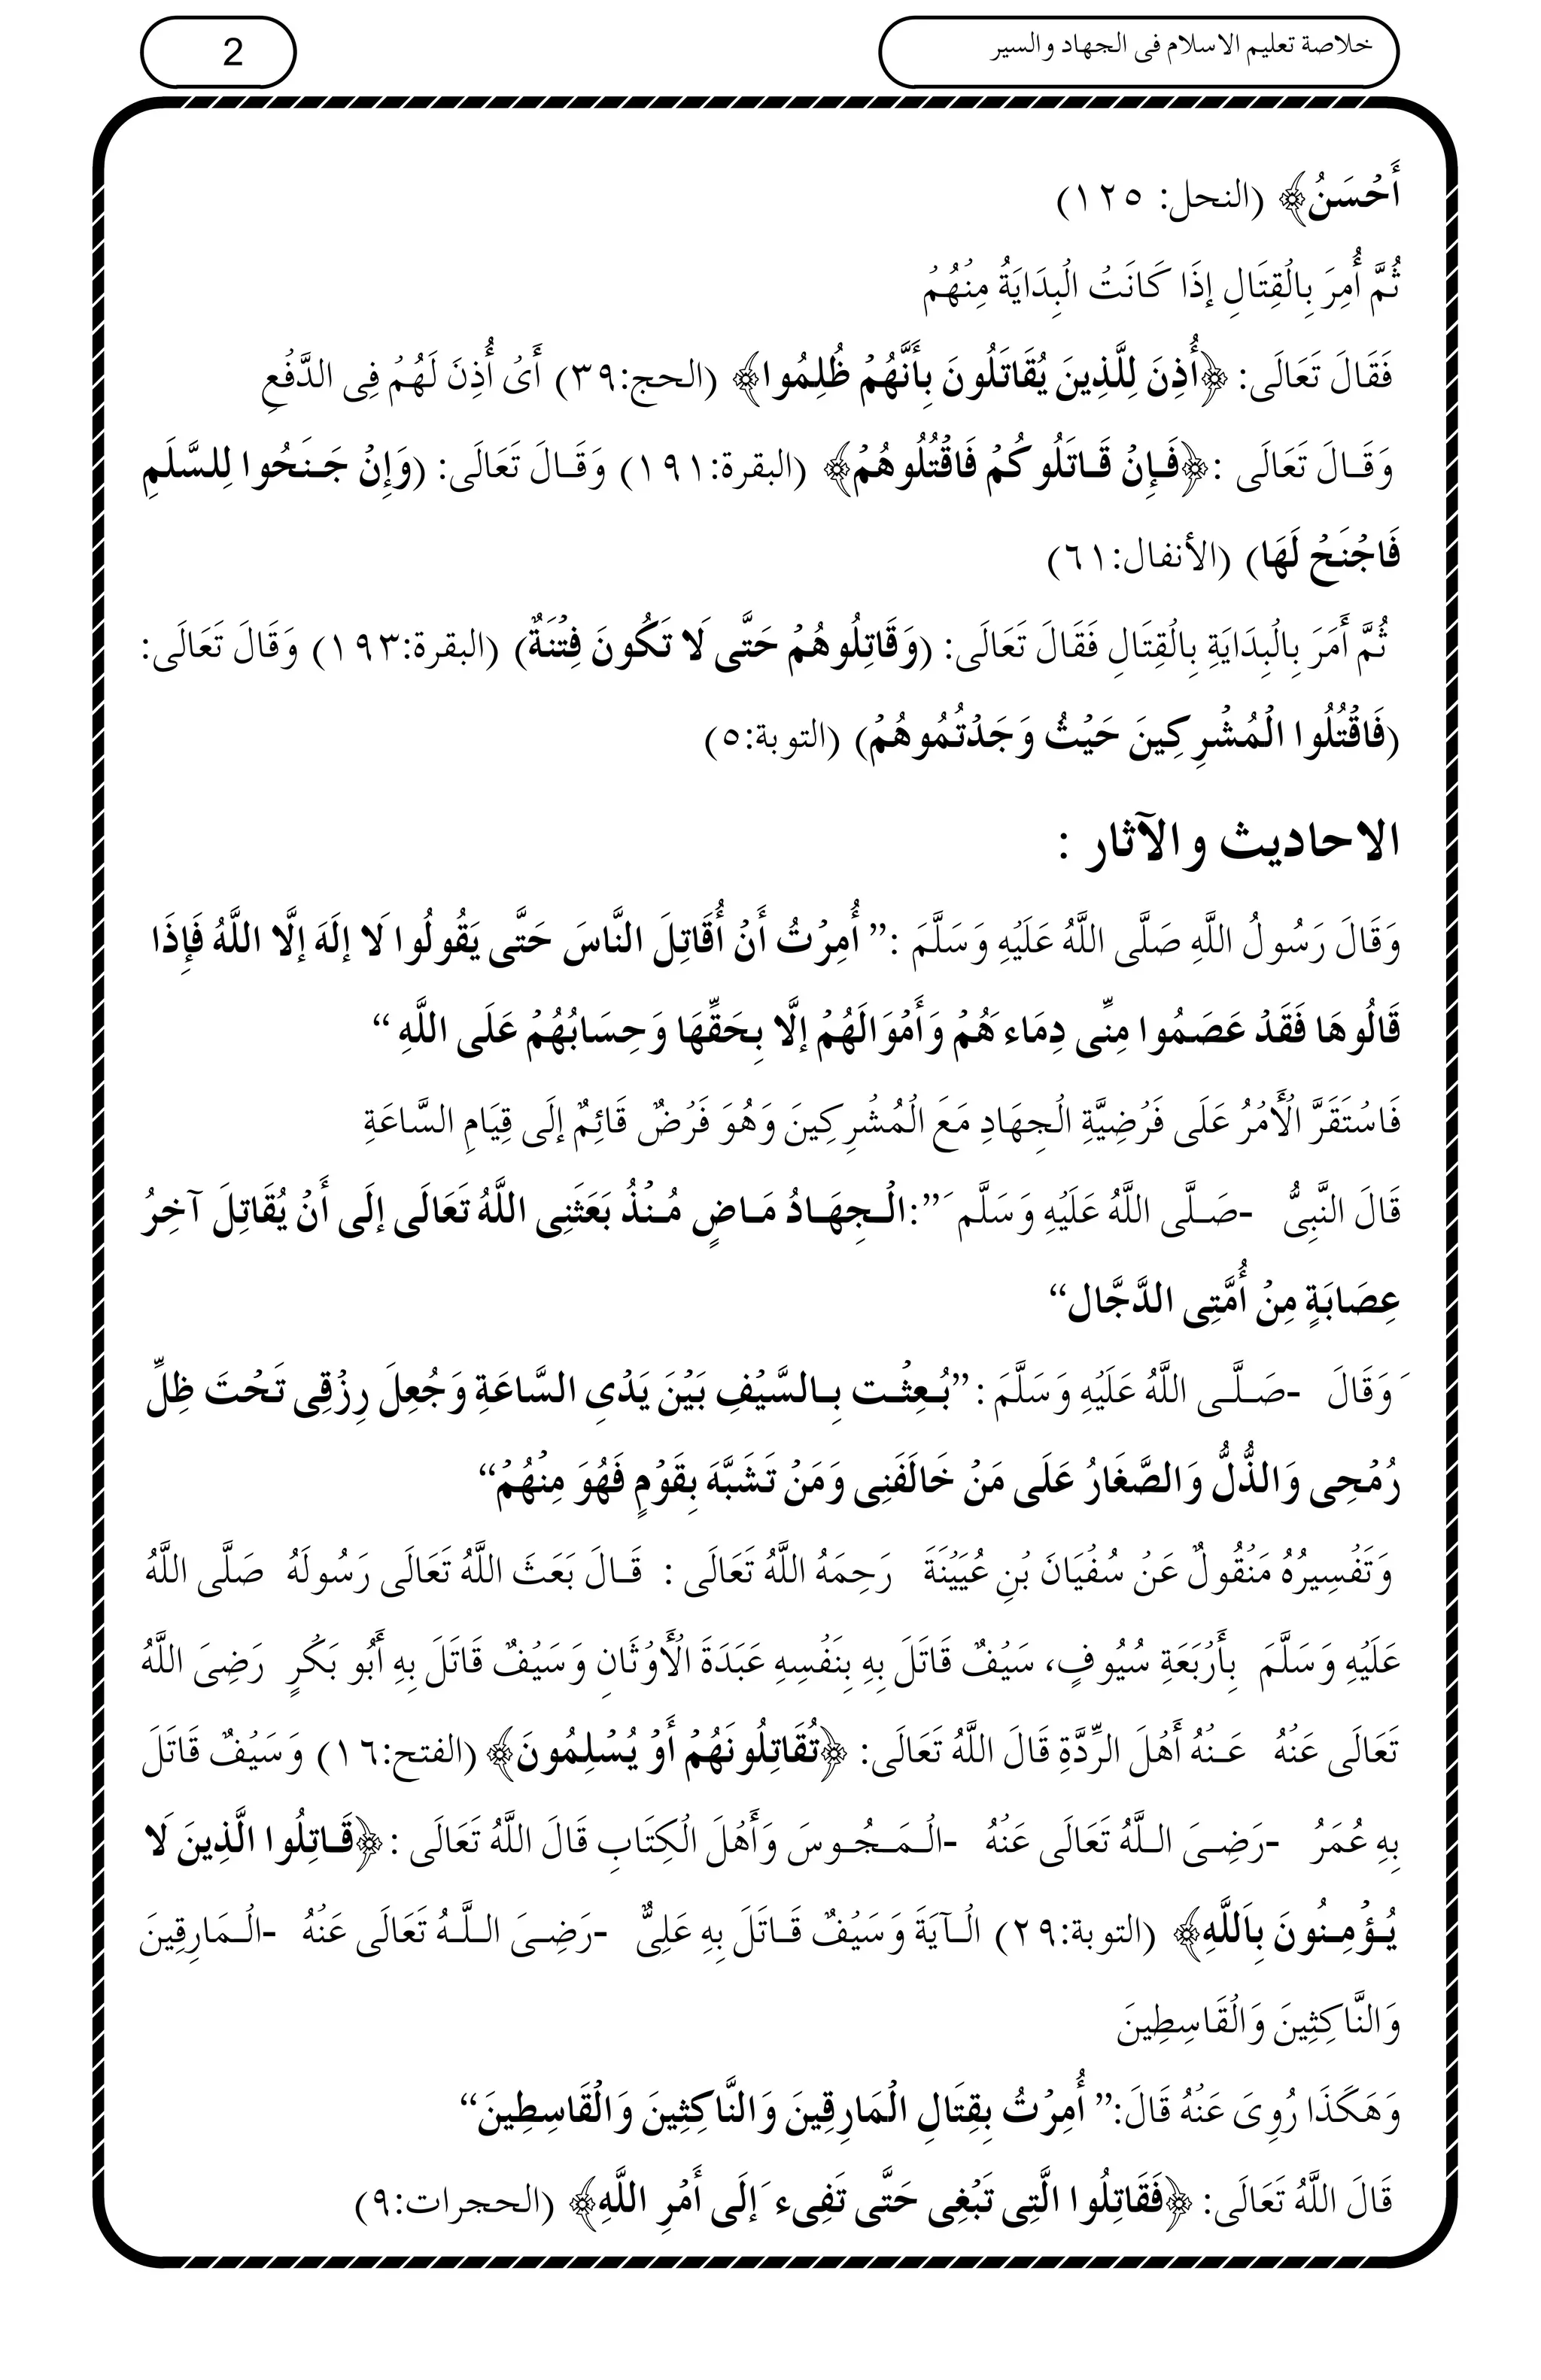 خلاصة تعليم الاسلام فى الجهاد والسير
2
أَحْسَنُ﴾ (النحل: ١٢٥)
ثُمَّ أُمِرَ بِالْقِتَالِ إذَا كَانَتْ الْبِدَايَةُ مِنْهُمْ
فَقَالَ تَعَالَى: ﴿أُذِنَ لِلَّذِينَ يُقَاتَلُونَ بِأَنَّهُمْ ظُلِمُوا﴾ (الحج:٣٩) أَىْ أُذِنَ لَهُمْ فِى الدَّفْعِ
وَقَالَ تَعَالَى :﴿فَإِنْ قَاتَلُوكُمْ فَاقْتُلُوهُمْ﴾ (البقرة:١٩١) وَقَالَ تَعَالَى: (وَإِنْ جَنَحُوا لِلسَّلَمِ
فَاجْنَحْ لَهَا) (الأنفال:٦١)
ثُمَّ أَمَرَ بِالْبِدَايَةِ بِالْقِتَالِ فَقَالَ تَعَالَى: (وَقَاتِلُوهُمْ حَتَّى لَا تَكُونَ فِتْنَةٌ) (البقرة:١٩٣) وَقَالَ تَعَالَى:
(فَاقْتُلُوا الْمُشْرِكِينَ حَيْثُ وَجَدْتُمُوهُمْ) (التوبة:٥)
الاحاديث والآثار :
وَقَالَ رَسُولُ اللَّهِ صَلَّى اللَّهُ عَلَيْهِ وَسَلَّمَ :”أُمِرْتُ أَنْ أُقَاتِلَ النَّاسَ حَتَّى يَقُولُوا لَا إلَهَ إلَّا اللَّهُ فَإِذَا
قَالُوهَا فَقَدْ عَصَمُوا مِنِّى دِمَاءهَمْ وَأَمْوَالَهُمْ إلَّا بِحَقِّهَا وَحِسَابُهُمْ عَلَى اللَّهِ“
فَاسْتَقَرَّ الْأَمْرُ عَلَى فَرْضِيَّةِ الْجِهَادِ مَعَ الْمُشْرِكِينَ وَهُوَ فَرْضٌ قَائِمٌ إلَى قِيَامِ السَّاعَةِ
قَالَ النَّبِىُّ -صَلَّى اللَّهُ عَلَيْهِ وَسَلَّمَ ”:الْجِهَادُ مَاضٍ مُنْذُ بَعَثَنِى اللَّهُ تَعَالَى إلَى أَنْ يُقَاتِلَ آخِرُ
عِصَابَةٍ مِنْ أُمَّتِى الدَّجَّال“
وَقَالَ -صَلَّى اللَّهُ عَلَيْهِ وَسَلَّمَ :”بُعِثْت بِالسَّيْفِ بَيْنَ يَدْىِ السَّاعَةِ وَجُعِلَ رِزْقِى تَحْتَ ظِلِّ
رُمْحِى وَالذُّلُّ وَالصَّغَارُ عَلَى مَنْ خَالَفَنِى وَمَنْ تَشَبَّهَ بِقَوْمٍ فَهُوَ مِنْهُمْ“
وَتَفْسِيرُهُ مَنْقُولٌ عَنْ سُفْيَانَ بْنِ عُيَيْنَةَ رَحِمَهُ اللَّهُ تَعَالَى : قَالَ بَعَثَ اللَّهُ تَعَالَى رَسُولَهُ صَلَّى اللَّهُ
عَلَيْهِ وَسَلَّمَ بِأَرْبَعَةِ سُيُوفٍ، سَيْفٌ قَاتَلَ بِهِ بِنَفْسِهِ عَبَدَةَ الْأَوْثَانِ وَسَيْفٌ قَاتَلَ بِهِ أَبُو بَكْرٍ رَضِىَ اللَّهُ
تَعَالَى عَنْهُ عَنْهُ أَهْلَ الرِّدَّةِ قَالَ اللَّهُ تَعَالَى: ﴿تُقَاتِلُونَهُمْ أَوْ يُسْلِمُونَ﴾ (الفتح:١٦) وَسَيْفٌ قَاتَلَ
بِهِ عُمَرُ -رَضِىَ اللَّهُ تَعَالَى عَنْهُ -الْمَجُوسَ وَأَهْلَ الْكِتَابِ قَالَ اللَّهُ تَعَالَى :﴿قَاتِلُوا الَّذِينَ لَا
يُؤْمِنُونَ بِاَللَّهِ﴾ (التوبة:٢٩) الْآيَةَ وَسَيْفٌ قَاتَلَ بِهِ عَلِىٌّ -رَضِىَ اللَّهُ تَعَالَى عَنْهُ -الْمَارِقِينَ
وَالنَّاكِثِينَ وَالْقَاسِطِينَ
وَهَكَذَا رُوِىَ عَنْهُ قَالَ:”أُمِرْتُ بِقِتَالِ الْمَارِقِينَ وَالنَّاكِثِينَ وَالْقَاسِطِينَ“
قَالَ اللَّهُ تَعَالَى: ﴿فَقَاتِلُوا الَّتِى تَبْغِى حَتَّى تَفِىءَ إلَى أَمْرِ اللَّهِ﴾ (الحجرات:٩)